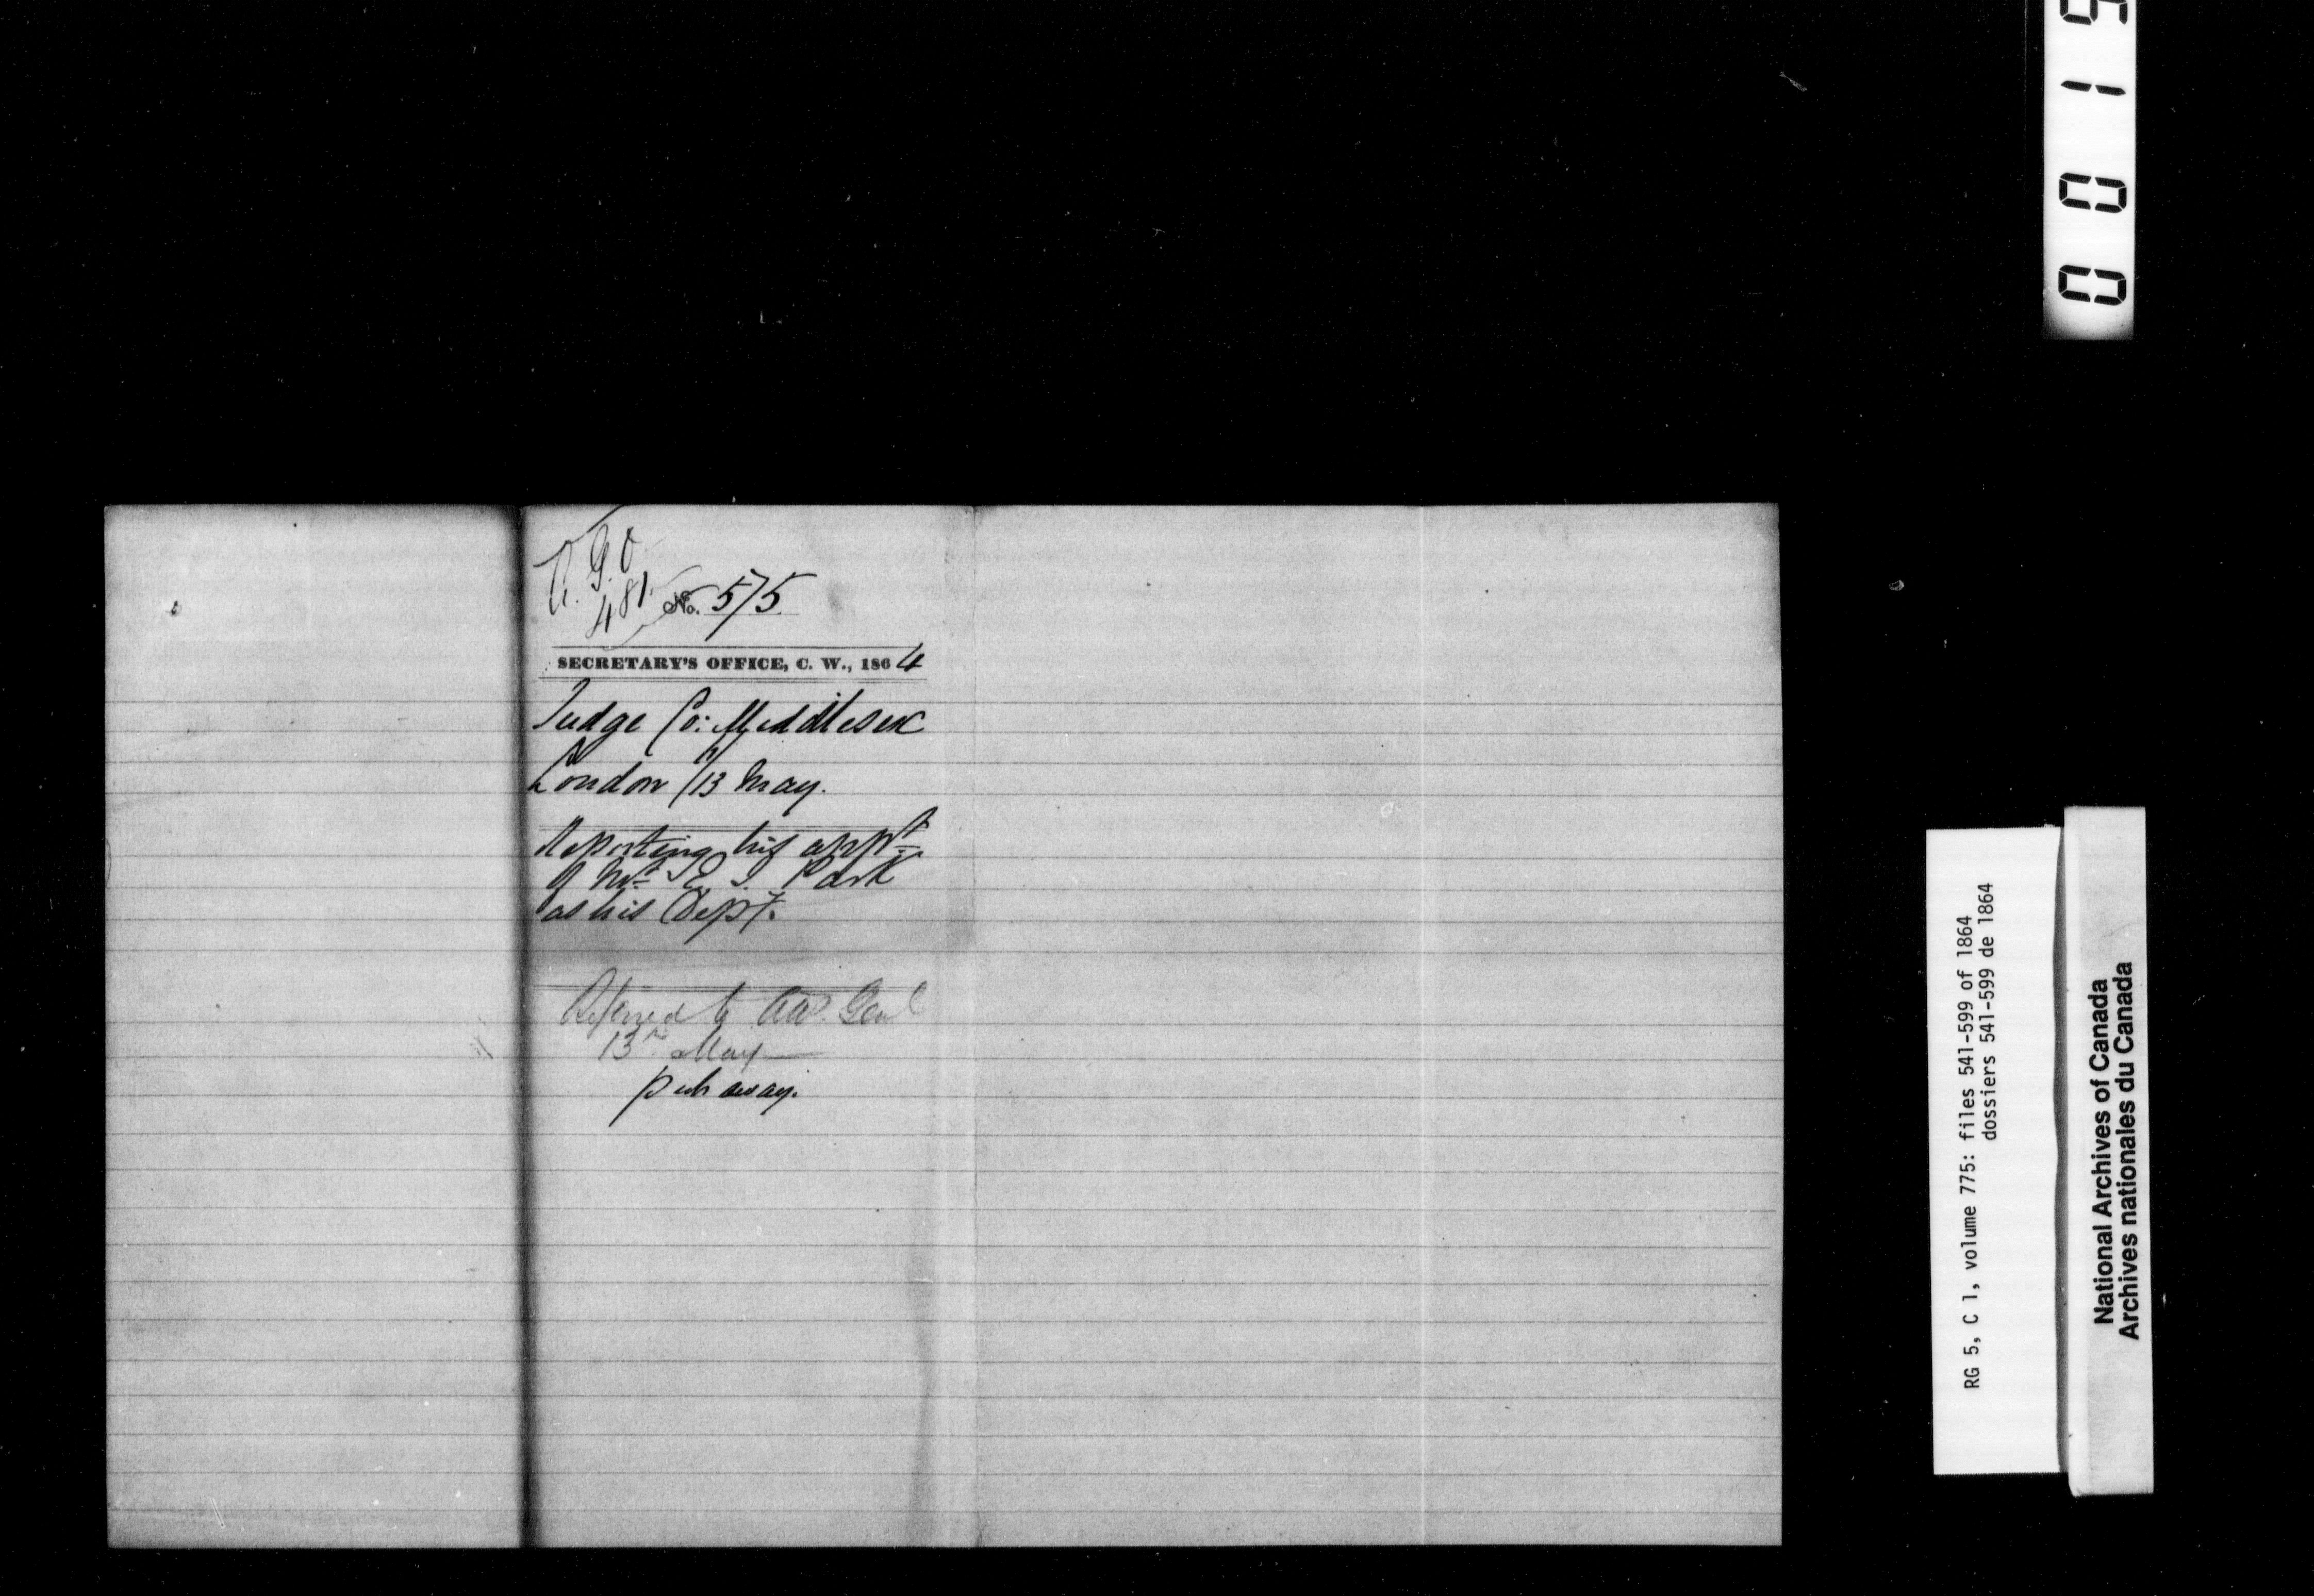 A. G. O
481.
No. 575
SECRETARY'S OFFICE, C. W., 1864
Judge Co: Middlesex
London / 13 May.
Reporting his appt
of Mr E. J. Park
as his Dept.
Referred to Att. Genl
13th May
put away.
0015
RG 5, C 1, volume 775: files 541-599 of 1864
dossiers 541-599 de 1864
National Archives of Canada
Archives nationales du Canada